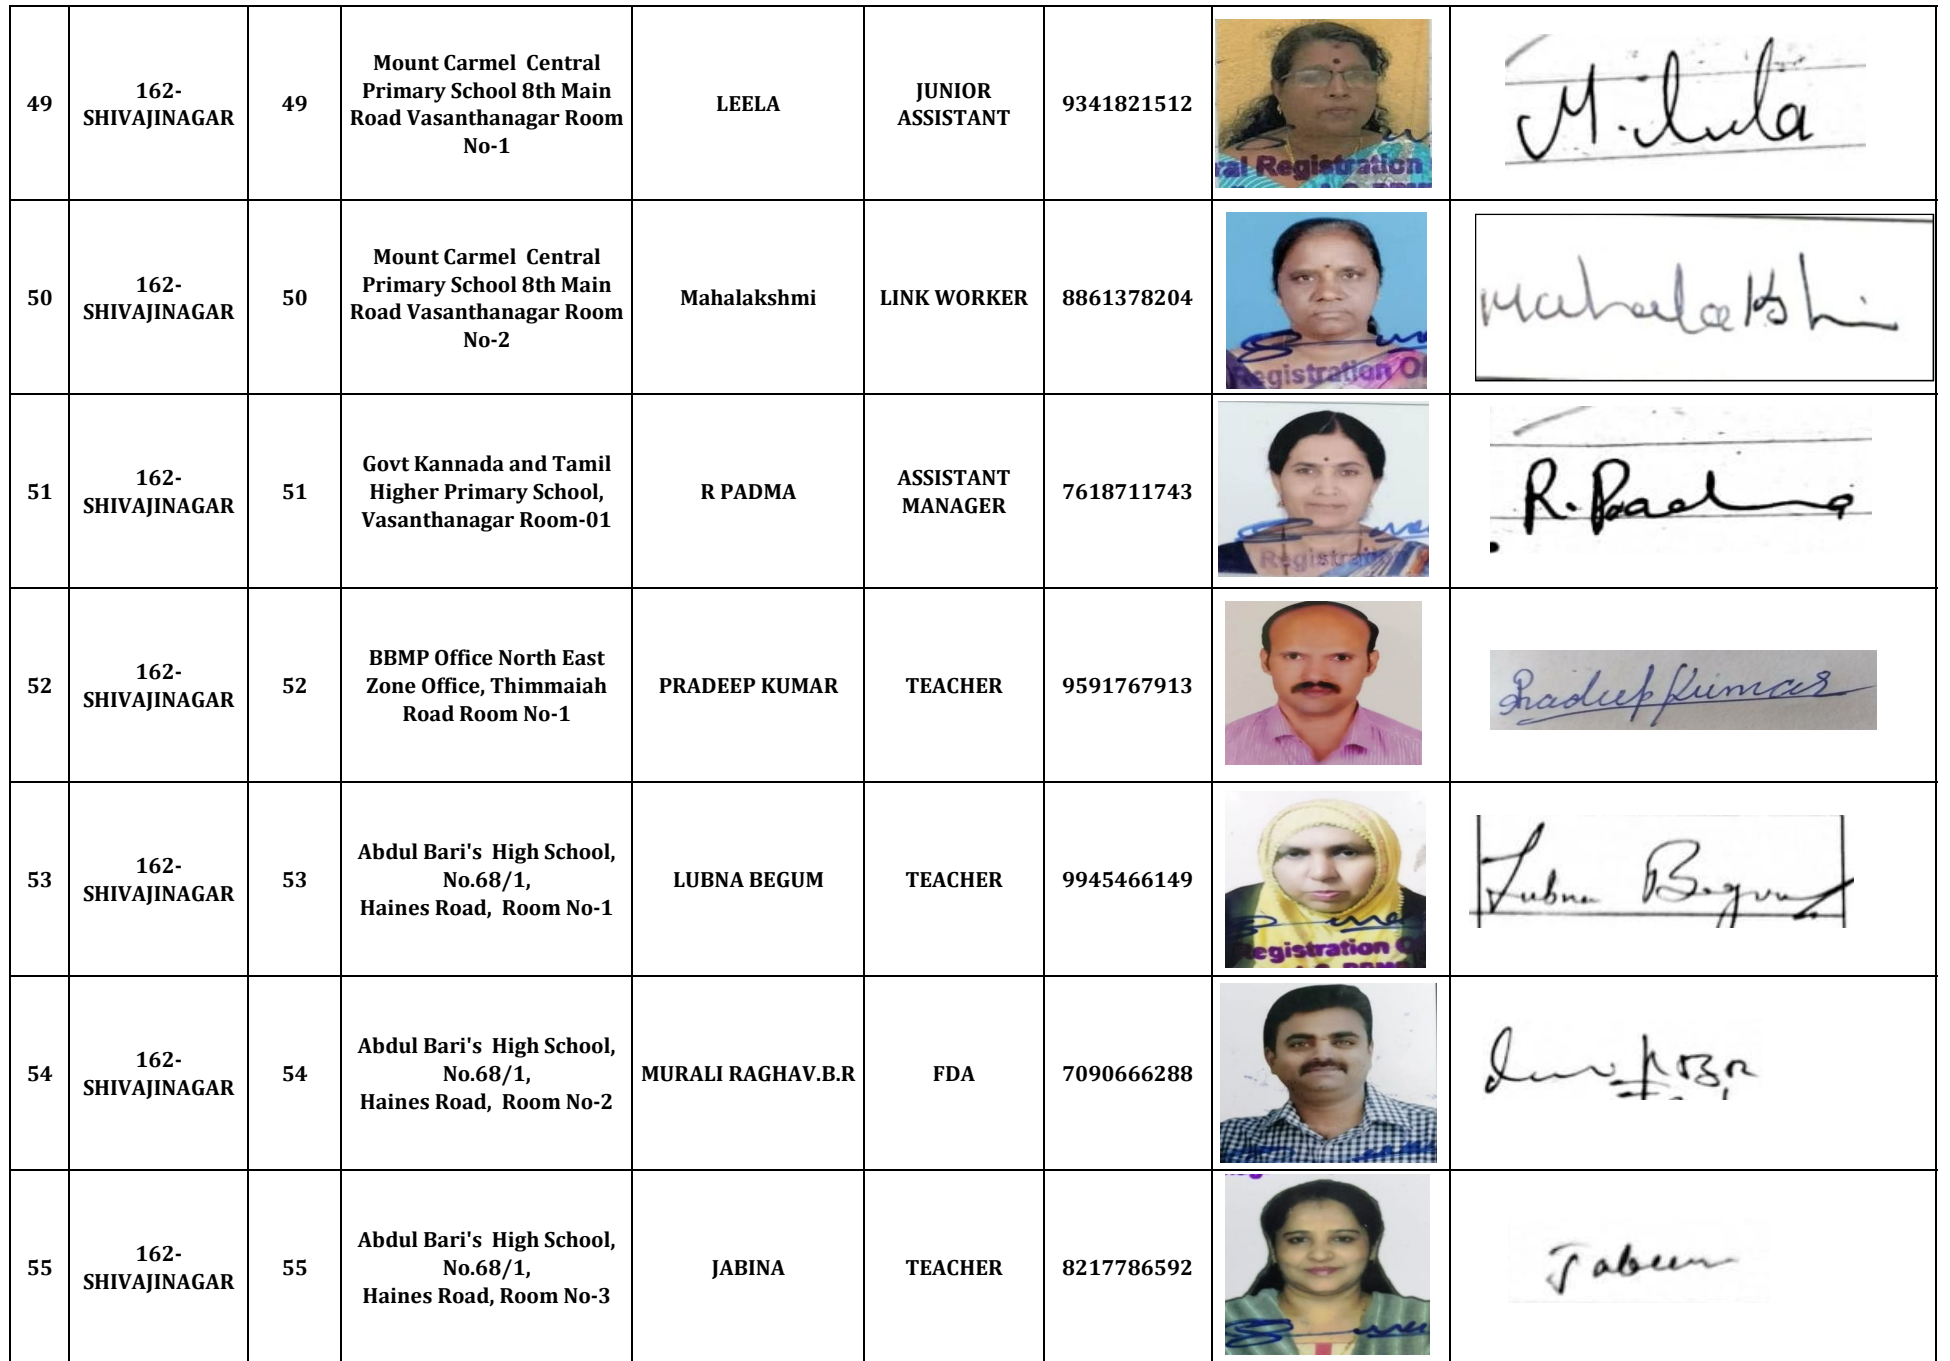 49
162-
SHIVAJINAGAR
49
Mount Carmel Central
Primary School 8th Main
Road Vasanthanagar Room
No-1
LEELA
JUNIOR
ASSISTANT
9341821512
ral Registration
M. Leela
50
162-
SHIVAJINAGAR
50
Mount Carmel Central
Primary School 8th Main
Road Vasanthanagar Room
No-2
Mahalakshmi
LINK WORKER
8861378204
egistration O
Mahalakshmi
51
162-
SHIVAJINAGAR
51
Govt Kannada and Tamil
Higher Primary School,
Vasanthanagar Room-01
R PADMA
ASSISTANT
MANAGER
7618711743
Registrati
R. Padma
52
162-
SHIVAJINAGAR
52
BBMP Office North East
Zone Office, Thimmaiah
Road Room No-1
PRADEEP KUMAR
TEACHER
9591767913
Pradeep Kumar
53
162-
SHIVAJINAGAR
53
Abdul Bari's High School,
No.68/1,
Haines Road, Room No-1
LUBNA BEGUM
TEACHER
9945466149
egistration O
Lubna Begum
54
162-
SHIVAJINAGAR
54
Abdul Bari's High School,
No.68/1,
Haines Road, Room No-2
MURALI RAGHAV.B.R
FDA
7090666288
55
162-
SHIVAJINAGAR
55
Abdul Bari's High School,
No.68/1,
Haines Road, Room No-3
JABINA
TEACHER
8217786592